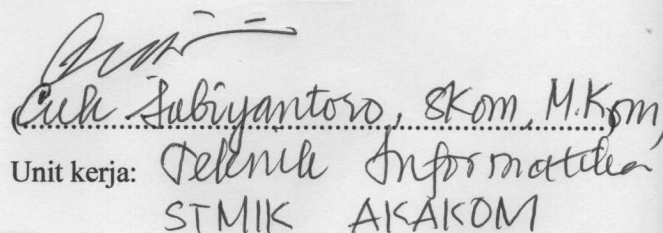 (Cuk Subiyantoro, SKom, M.Kom)
Unit kerja: Teknik Informatika
STMIK AKAKOM